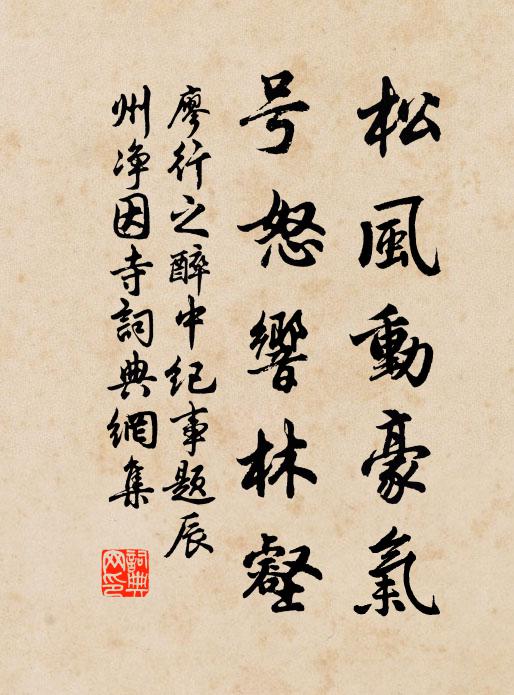 松風動豪氣
号怒響林壑
廖行之醉中纪事题辰
州净因寺詞典網集
詞典網印